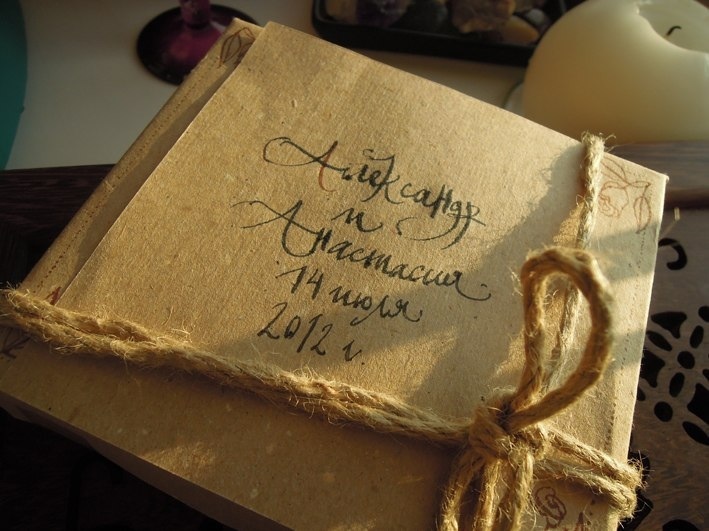 Александр
и
Анастасия.
14 июля
2012 г.